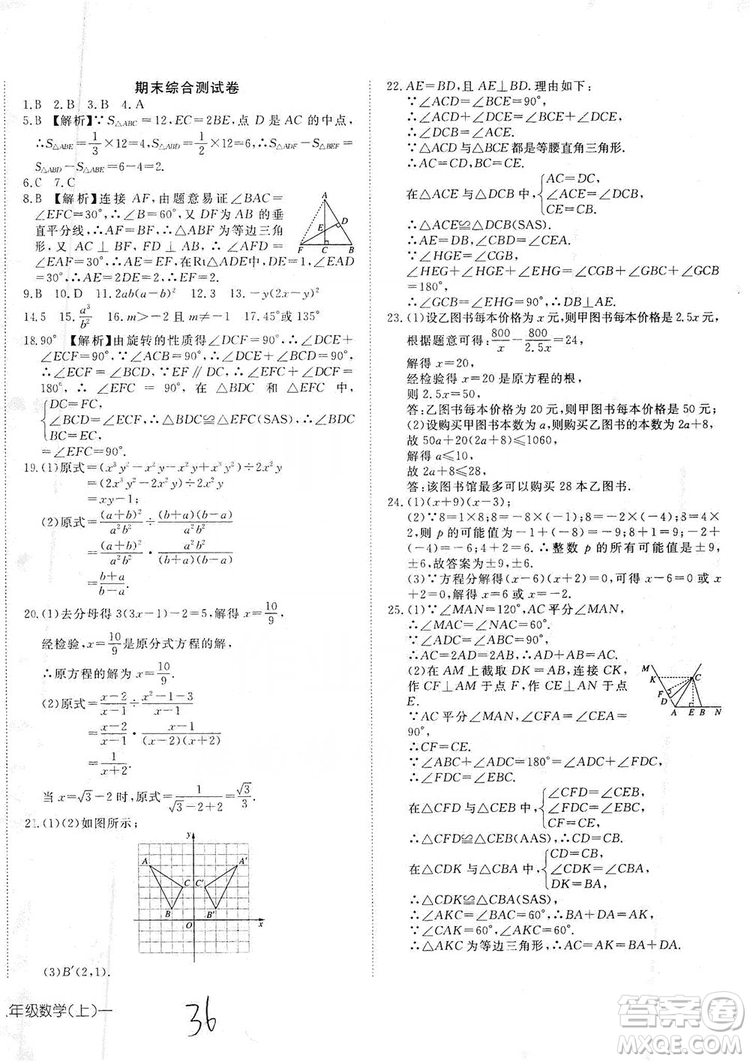 期末综合测试卷
1.B 2.B 3.B 4.A
5.B 【解析】∵S△ABC=12,EC=2BE,点 D 是 AC 的中点,
∴S△ABE=1/3×12=4,S△ABD=1/2×12=6,∴S△ADF-S△BEF=
S△ABD-S△ABE=6-4=2.
6.C 7.C
8.B 【解析】连接 AF,由题意易证∠BAC=
∠EFC=30°,∴∠B=60°,又 DF为AB的垂
直平分线,∴AF=BF,∴△ABF为等边三角
形,又∵AC⊥BF,FD⊥AB,∴AC=DF,
∠EAF=30°,∴AE=2DE=2,在Rt△ADE中,∠DAE=30°,
9.B 10.D 11.2ab(a-b)² 12.3 13.-y(2x-y)²
14.5 15.a³/b² 16.m>-2 且 m≠-1 17.45°或135°
18.90° 【解析】由旋转的性质得∠DCF=90°,∴∠DCE+
∠ECF=90°.∵∠BCD+∠DCE=90°,∴∠BCD=
∠ECF.∵EF∥DC,∴∠EFC+∠DCF=
180°,∴∠EFC=90°.在△BDC和△EFC中,
{DC=FC,
∠BCD=∠ECF,∴△BDC≌△EFC(SAS),∴∠BDC=
BC=EC,
∠EFC=90°.
19.(1)原式=(x³y²-x²y-x²y+x³y²)÷2x²y
=(2x³y²-2x²y)÷2x²y
=xy-1.
(2)原式=(a+b)²/a²b²÷(b²-a²)/a²b²
=(a+b)²/a²b²÷(b+a)(b-a)/a²b²
=(a+b)²/a²b²·a²b²/(b+a)(b-a)
=(b+a)/(b-a).
20.(1)去分母得 3(3x-1)-2=5,解得 x=10/9,
经检验,x=10/9是原分式方程的解,
∴原方程的解为 x=10/9.
(2)原式=(x-2)/(x-1)÷(x²-1-3)/(x-1)
=(x-2)/(x-1)·(x-1)/(x-2)(x+2)
=1/(x+2).
当 x=√3-2时,原式=1/(√3-2+2)=√3/3.
21.(1)(2)如图所示;
y
A
A′
C
C′
B
B′
O
x
(3)B′(2,1).
22.AE=BD,且 AE⊥BD.理由如下:
∵∠ACD=∠BCE=90°,
∴∠DCB=∠ACE.
∵△ACD与△BCE都是等腰直角三角形,
∴AC=DC,CE=CB.
在△ACE与△DCB中,{AC=DC,
∠ACE=∠DCB,
CE=CB,
∴△ACE≌△DCB(SAS)
∴AE=BD,∠CEA=∠CBD.
∵∠CBD+∠CGB=90°,
∠HEG+∠HGE=∠CBD+∠CGB=90°.
∴∠GCB=∠EHG=90°,∴AE⊥BD.
23.(1)设乙图书每本价格为 x 元,则甲图书每本价格是 2.5x 元,
根据题意可得:800/x-800/2.5x=24,
解得 x=20.
经检验得 x=20 是原方程的根,
则 2.5x=50,
答:乙图书每本价格为 20 元,则甲图书每本价格是 50 元;
(2)设购买甲图书本数为 a,则购买乙图书的本数为 2a+8,
故 50a+20(2a+8)≤1060,
解得 a≤10,
故 2a+8≤28.
答:该图书馆最多可以购买 28 本乙图书.
24.(1)(x+9)(x-3);
(2)∵8=1×8;8=-8×(-1);8=-2×(-4);8=2×4,
则 p 的可能值为-1+(-8)=-9;8+1=9;-2+
(-4)=-6;4+2=6.∴整数 p 的所有可能值是±9,
±6,故答案为±9,±6.
(3)∵方程分解得(x-6)(x+2)=0,可得 x-6=0或x+2=
0,解得 x=6 或 x=-2.
25.(1)∵∠MAN=120°,AC 平分∠MAN,
∴∠MAC=∠NAC=60°.
∵∠ADC=∠ABC=90°,
∴∠ACD=∠ACB=30°,
∴AC=2AD,AC=2AB,∴AD=AB.
(2)在 AM 上截取 DK=AB,连接 CK,
作 CF⊥AM 于点 F,作 CE⊥AN 于点
E.
∵AC 平分∠MAN,∠CFA=∠CEA=
90°,
∴CF=CE.
∵∠ABC+∠ADC=180°,∠ADC+
∠KDC=180°,∴∠ABC=∠KDC.
在△CFD 与△CEB 中,{∠CFD=∠CEB,
∠CDF=∠CBE,
CF=CE,
∴△CFD≌△CEB(AAS),∴CD=CB.
在△CDK 与△CBA 中,{CD=CB,
∠CDK=∠CBA,
DK=BA,
∴△CDK≌△CBA(SAS),
∴∠AKC=∠BAC=60°,
又∵∠KAC=60°,
∴△AKC 为等边三角形.
年级数学(上)一
36
答案圈
MXQE.COM